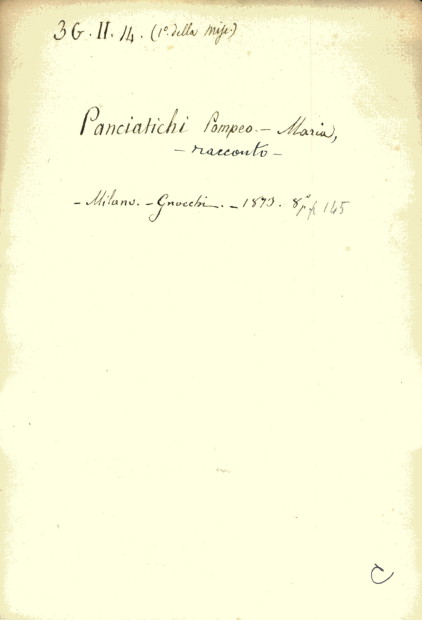 3 G. II. 14. (1º della misc.)
Panciatichi Pompeo. - Maria,
- racconto -
- Milano. - Gnocchi. - 1873. 8º p. 145
C